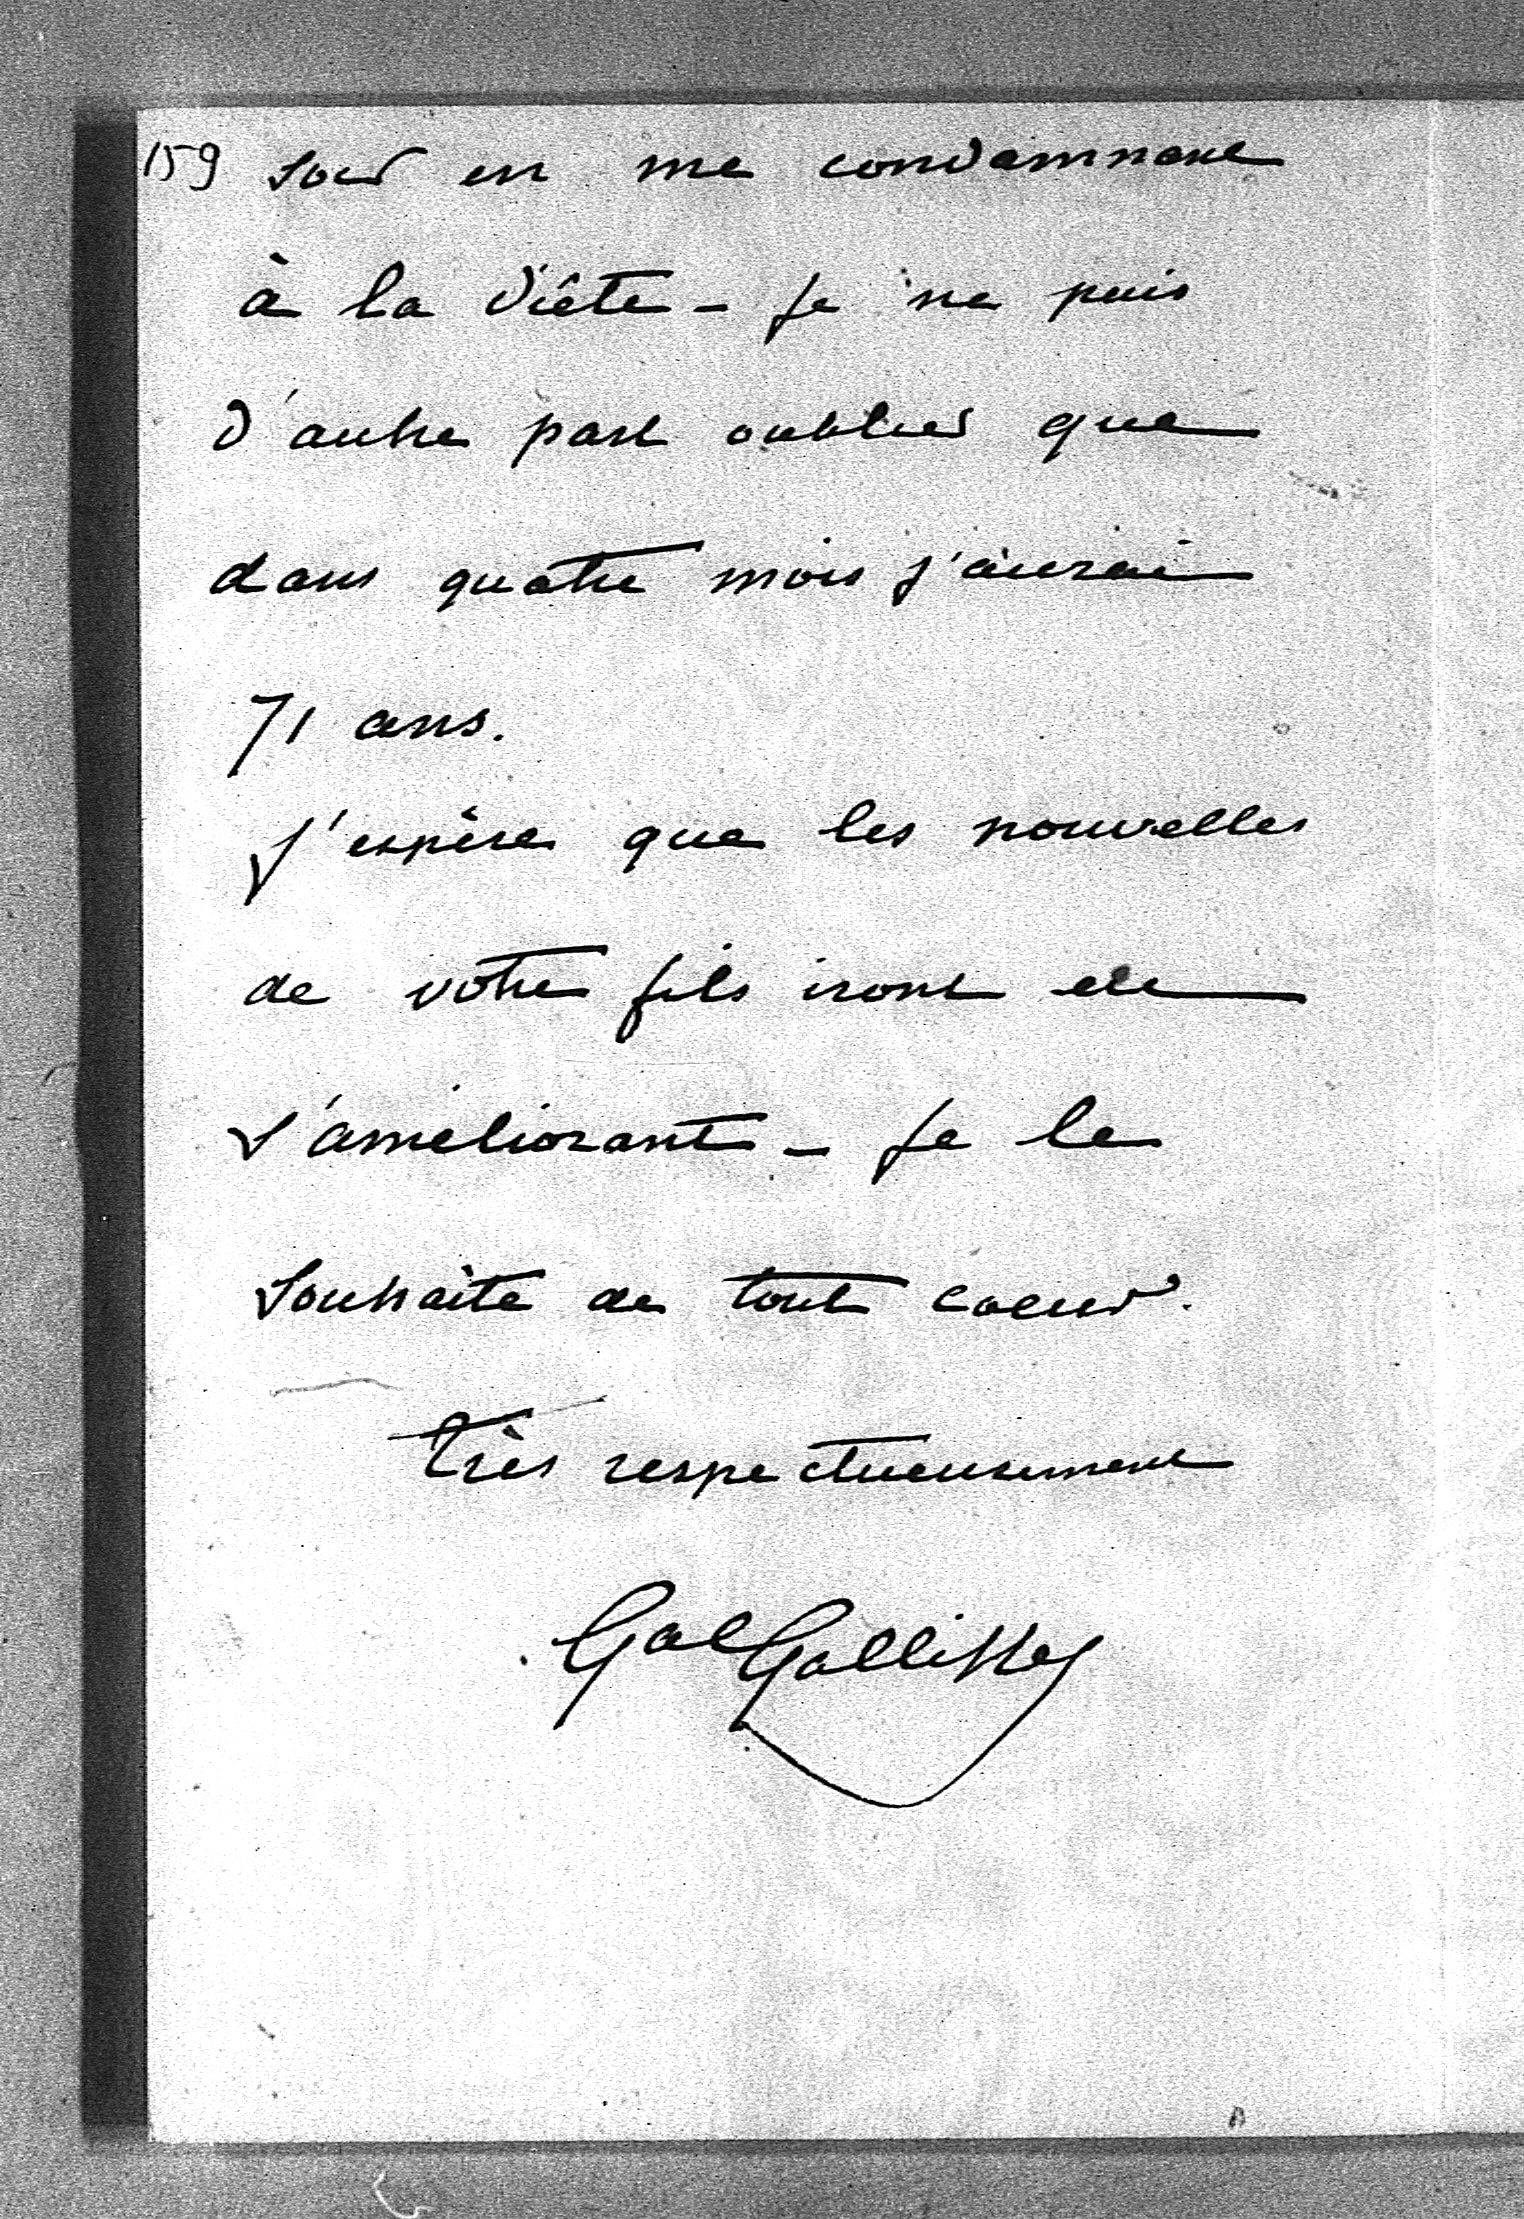 159 soir en me condamnant
à la diète - je ne puis
d'autre part oublier que
dans quatre mois j'aurai
71 ans.
J'espère que les nouvelles
de votre fils iront en
s'améliorant - je le
souhaite de tout coeur.
Très respectueusement
Gal Galliffet